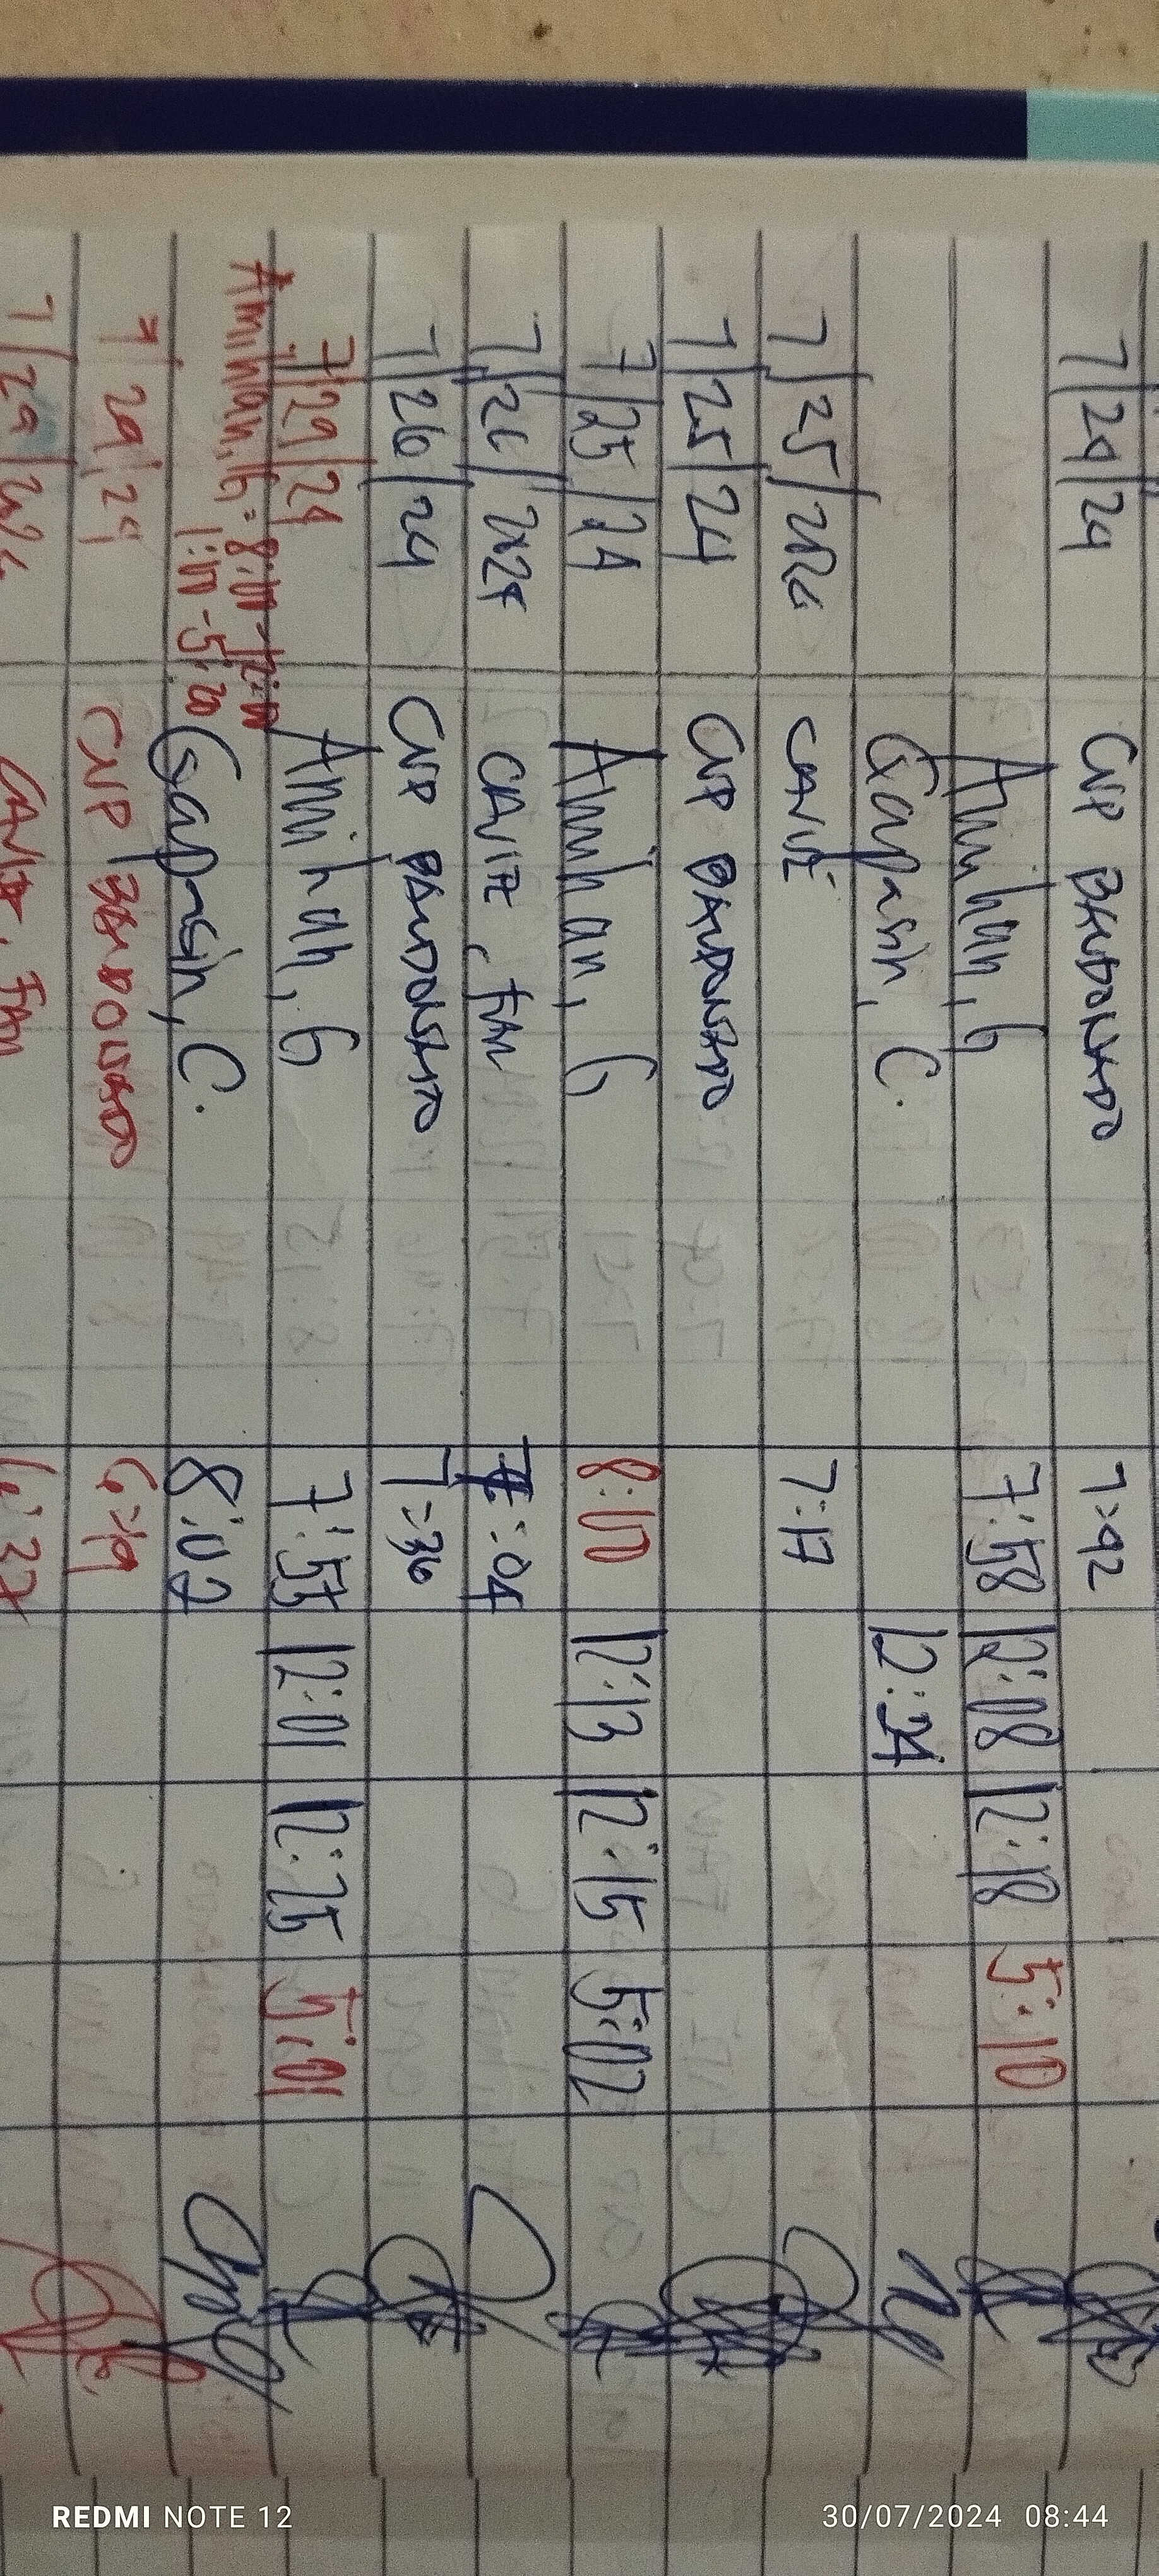 7/24/24 CNP BALDONADO 7:42
Amihan, G 7:58 12:08 12:18 5:10
Gapasin, C. 12:34
7/25/2024 CAVITE 7:17
7/25/24 CNP BALDONADO
7/25/24 Amihan, G 8:00 12:13 12:15 5:02
7/26/2024 CAVITE, FAM 7:04
7/26/24 CNP BALDONADO 7:36
7/29/24 Amihan, G 7:53 12:01 12:25 5:01
Amihan, G = 8:00 - 12:00
1:00 - 5:00
Gapasin, C. 8:02
7/29/24 CNP BALDONADO 6:29
7/29/ CAVITE, FAM 6:37
REDMI NOTE 12
30/07/2024 08:44